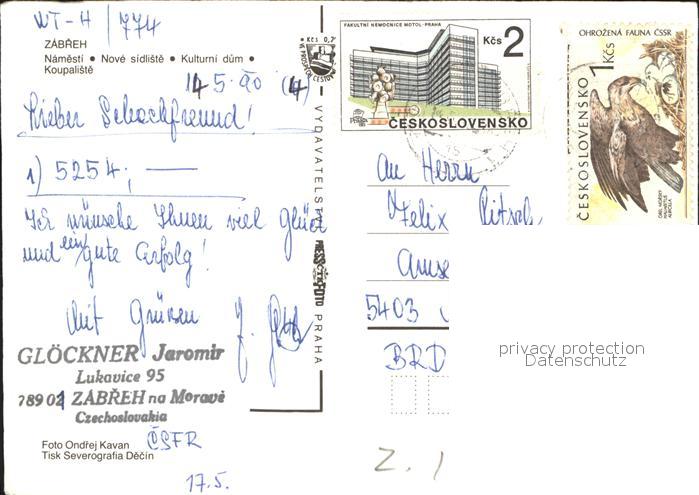 WT-H / 774
ZÁBŘEH
Náměstí • Nové sídliště • Kulturní dům •
Koupaliště
14 5. 90 (4)
Lieber Schachfreund!
1) 5254; —
Ich wünsche Ihnen viel Glück
und ein gute Erfolg!
Mit Grüssen J.
GLÖCKNER Jaromír
Lukavice 95
78901 ZÁBŘEH na Moravě
Czechoslovakia
ČSFR
Foto Ondřej Kavan
Tisk Severografia Děčín
17.5.
VYDAVATELSTVÍ PRESSFOTO PRAHA
Kčs 0,7
FAKULTNÍ NEMOCNICE MOTOL-PRAHA
Kčs 2
PRAGA
ČESKOSLOVENSKO
OHROŽENÁ FAUNA ČSSR
1 Kčs
ČESKOSLOVENSKO
An Herrn
Felix
5403
BRD
privacy protection
Datenschutz
Z. 1